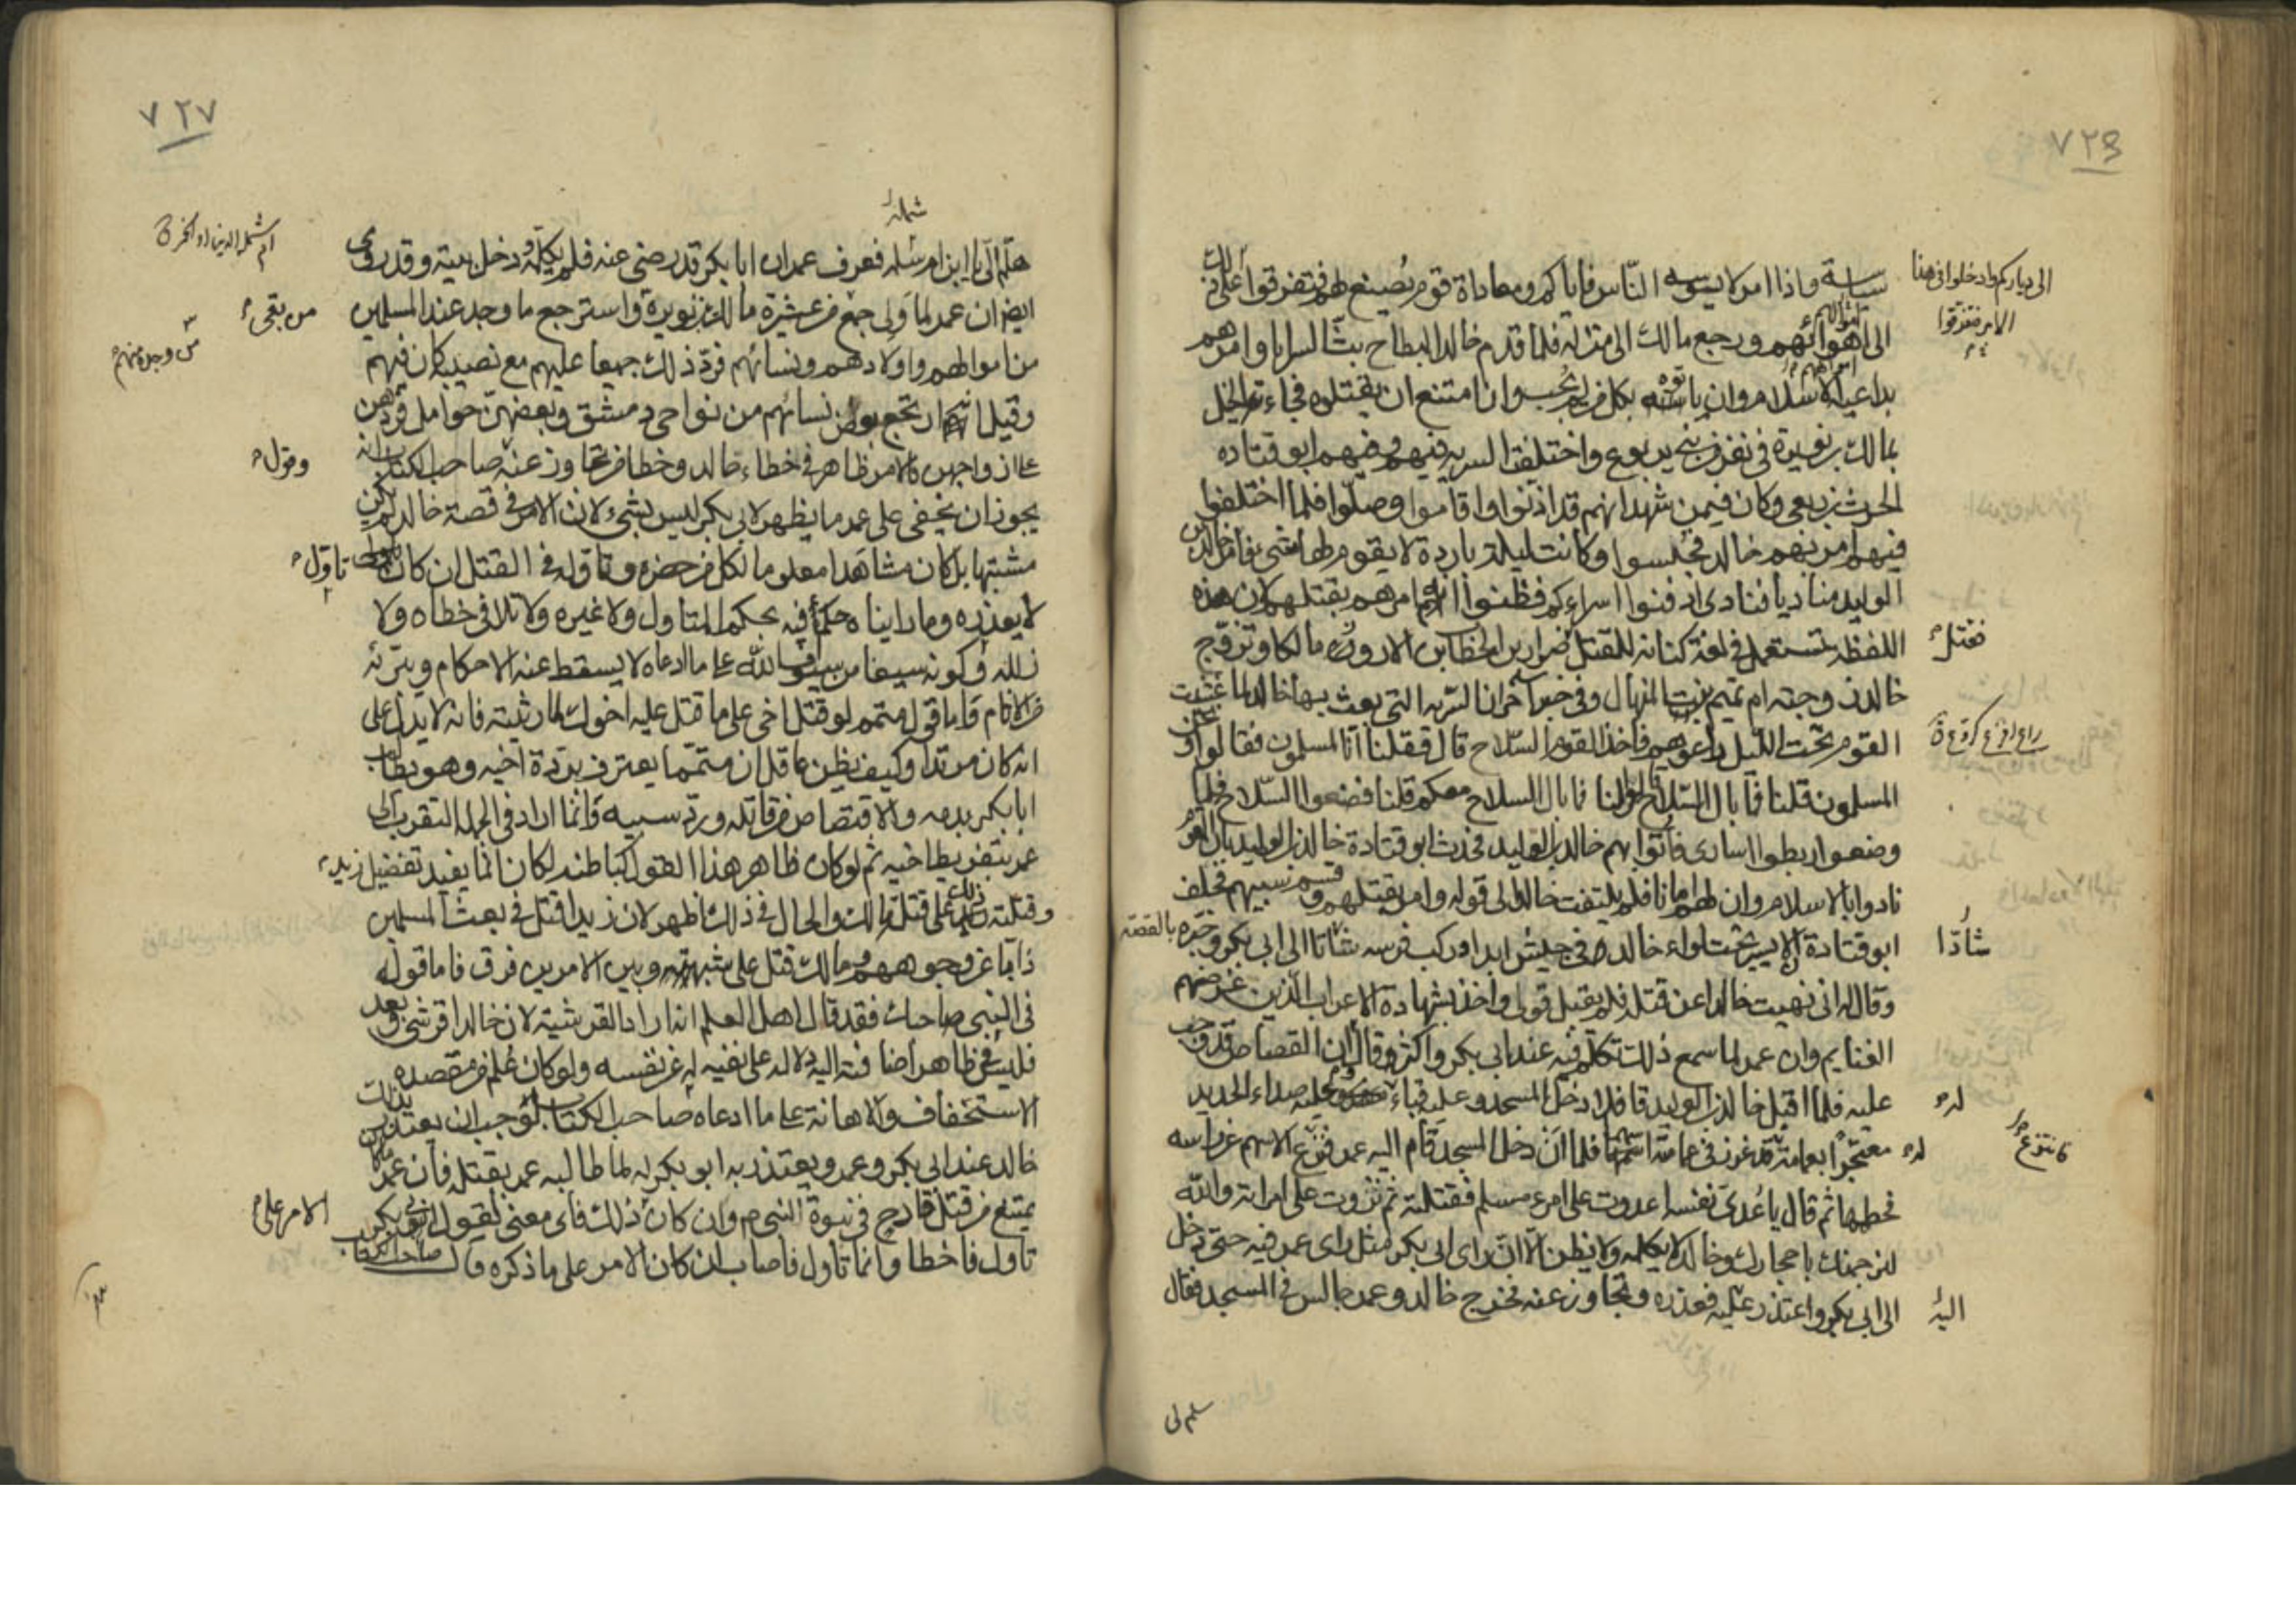 ٧٢٦
سياسة واذا امر لا يسوسه الناس فاياكم ومعاداة قوم يصنع لهم فتفرقوا على ذلك
الى دياركم وادخلوا فى هذا
الامر فتفرقوا
الى اهوائهم ورجع مالك الى منزله فلما قدم خالد البطاح بث السرايا وامرهم
اموالهم
بداعية الاسلام وان ياتوه بكل من لم يجب وان امتنع ان يقتلوه فجاءته الخيل
بمالك بن نويرة فى نفر من بنى يربوع واختلفت السريه فيهم وفيهم ابو قتاده
الحرث بن ربعى وكان فيمن شهد انهم قد اذنوا واقاموا وصلوا فلما اختلفوا
فيهم امر بهم خالد فحبسوا وكانت ليلة باردة لا يقوم لها شىء فامر خالد بن
الوليد مناديا فنادى ادفئوا اسراءكم فظنوا انهم امرهم بقتلهم لان هذه
اللفظه تستعمل فى لغة كنانه للقتل ضرار بن الازور مالكا وتزوج
فقتل
خالد زوجته ام تميم بنت المنهال وفى خبر آخر ان السريه التى بعث بها خالد لما غشيت
القوم تحت الليل راعوهم فاخذ القوم السلاح قال فقلنا انا المسلمون فقالوا ونحن
المسلمون قلنا فما بال السلاح قالوا لنا فما بال السلاح معكم قلنا فضعوا السلاح فلما
وضعوا ربطوا اسارى فاتوا بهم خالد بن الوليد فحدث ابو قتادة خالد بن الوليد بان القوم
نادوا بالاسلام وان لهم امانا فلم يلتفت خالد الى قوله وامر بقتلهم وقسم سبيهم فحلف
ابو قتادة الا يسير تحت لواء خالد فى جيش ابدا وركب فرسه شاذا الى ابى بكر وخبره بالقصة
شاذا
وقال له انى نهيت خالدا عن قتله فلم يقبل قولى واخذ بشهادة الاعراب الذين غرضهم
الغنايم وان عمر لما سمع ذلك تكلم فيه عند ابى بكر واكثر وقال ان القصاص قد وجب
عليه فلما اقبل خالد بن الوليد قافلا دخل المسجد وعليه قباء عليه صداء الحديد
له
معتجرا بعمامة قد غرز فى عمامته اسهما فلما ان دخل المسجد قام اليه عمر فنزع الاسهم عن راسه
له
فانتزع
فحطمها ثم قال يا عُدىّ نفسه اعدوت على امرء مسلم فقتلته ثم نزوت على امراته والله
لنرجمنك باحجارك وخالد لا يكلمه ولا يظن الا ان راى ابى بكر مثل راى عمر فيه حتى دخل
الى ابى بكر واعتذر عليه فعذره وتجاوز عنه فخرج خالد وعمر جالس فى المسجد فقال
اليه
هلم الى
٧٢٧
شملة
هلم الى يا ابن ام شمله فعرف عمر ان ابا بكر قد رضى عنه فلم يكلمه ودخل بيته وقد روى
ايضا ان عمر لما ولى جمع من عشيرة مالك بن نويرة واسترجع ما وجد عند المسلمين
من بقى
من اموالهم واولادهم ونسائهم فرد ذلك جميعا عليهم مع نصيبه كان فيهم
من وجد منهم
وقيل انه ارتجع بعض نسائهم من نواحى دمشق وبعضهن حوامل فردهن
على ازواجهن فالامر ظاهر فى خطاء خالد وخطا من تجاوز عنه صاحب الكتاب انه
وقول
يجوز ان يخفى على عمر ما يظهر لابى بكر ليس بشىء لان الامر فى قصة خالد لم يكن
مشتبها بل كان مشاهدا معلوما لكل من حضره وما تاول به فى القتل ان كان
تاول
لا يعذره وما راينا ه حكم فيه بحكم المتاول ولا غيره ولا تلافى خطاه و لا
زلله وكونه سيفا من سيوف الله على ما ادعاه لا يسقط عنه الاحكام ويبرئه
من الاثام فاما قول متمم لو قتل اخى على ما قتل عليه اخوك لما رثيته فانه لا يدل على
انه كان مرتدا وكيف يظن عاقل ان متمما يعترف بردة اخيه وهو يطالب
ابا بكر بدمه والاقتصاص من قاتله ورد سبيه وانما اراد فى الجمله التقرب الى
عمر بتقريظ اخيه ثم لو كان ظاهر هذا القول كباطنه لكان انما يفيد تفضيل زيد
وقتلته على قتلة مالك والحال فى ذلك اظهر لان زيدا قتل فى بعث المسلمين
ذابا عن وجوههم ومالك قتل على شبهة وبين الامرين فرق فاما قوله
فى النبى صاحبك فقد قال اهل العلم انه اراد القرشية لان خالدا قرشى وبعد
فليس فى ظاهر اضافته اليه دلاله على نفيه له عن نفسه ولو كان علم من مقصده
الاستخفاف والاهانة على ما ادعاه صاحب الكتاب لوجب ان يعتذر بذلك
خالد عند ابى بكر وعمر ويعتذر به ابو بكر له لما طالبه عمر بقتله فان عمر ما كان
يمتنع من قتل قادح فى نبوة النبى ص وان كان ذلك فاى معنى لقول ابى بكر
الامر على
تاول فاخطا وانما تاول فاصاب ان كان الامر على ما ذكره قال صاحب الكتاب